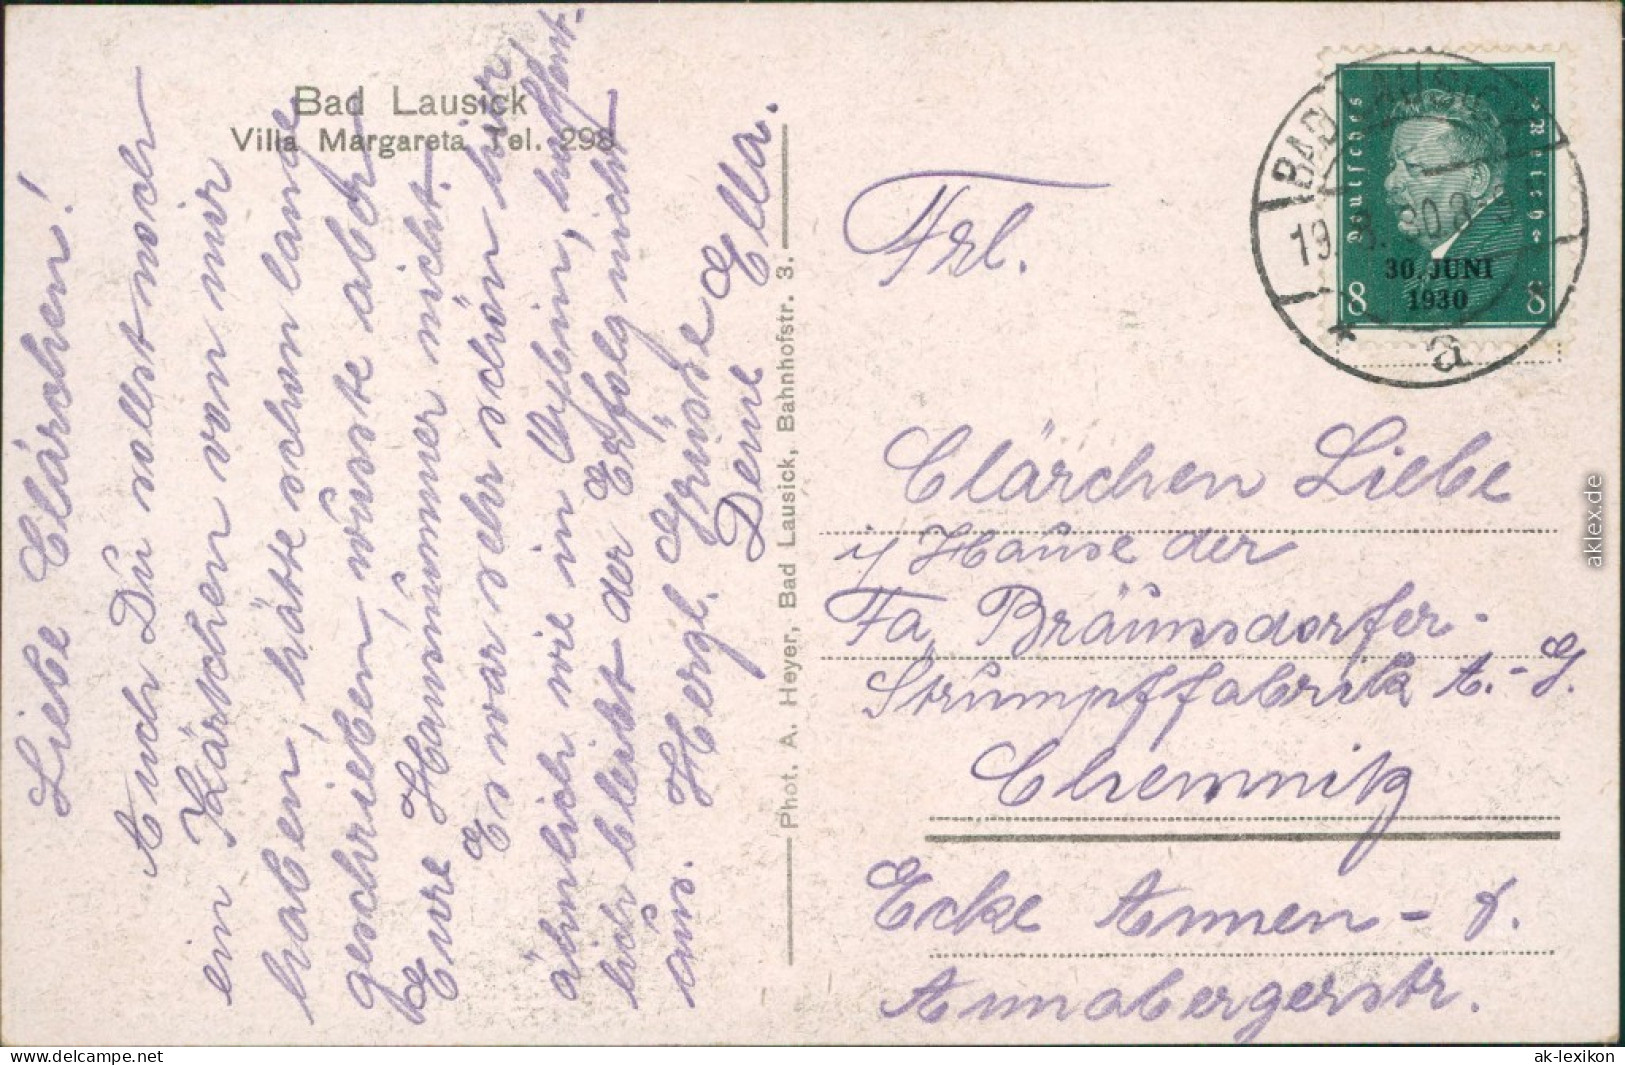 Bad Lausick
Villa Margareta Tel. 298
Liebe Clärchen!
Auch Du sollst noch
ein Kärtchen von mir
haben, hätte schon lange
geschrieben, wusste aber
Eure Hausnummer nicht.
Es war sehr schön hier,
ähnlich wie in Oybin, hoffent-
lich bleibt der Erfolg nicht
aus. Herzl. Grüsse
Deine Ella.
Phot. A. Heyer, Bad Lausick, Bahnhofstr. 3.
Deutsches Reich
30. JUNI
1930
8 8
BAD LAUSICK
19. 8. 30. 8
a
Frl.
Clärchen Liebe
i/ Hause der
Fa. Bräunsdorfer-
Strumpffabrik A.-G.
Chemnitz
Ecke Annen- u.
Annabergerstr.
aklex.de
www.delcampe.net
ak-lexikon